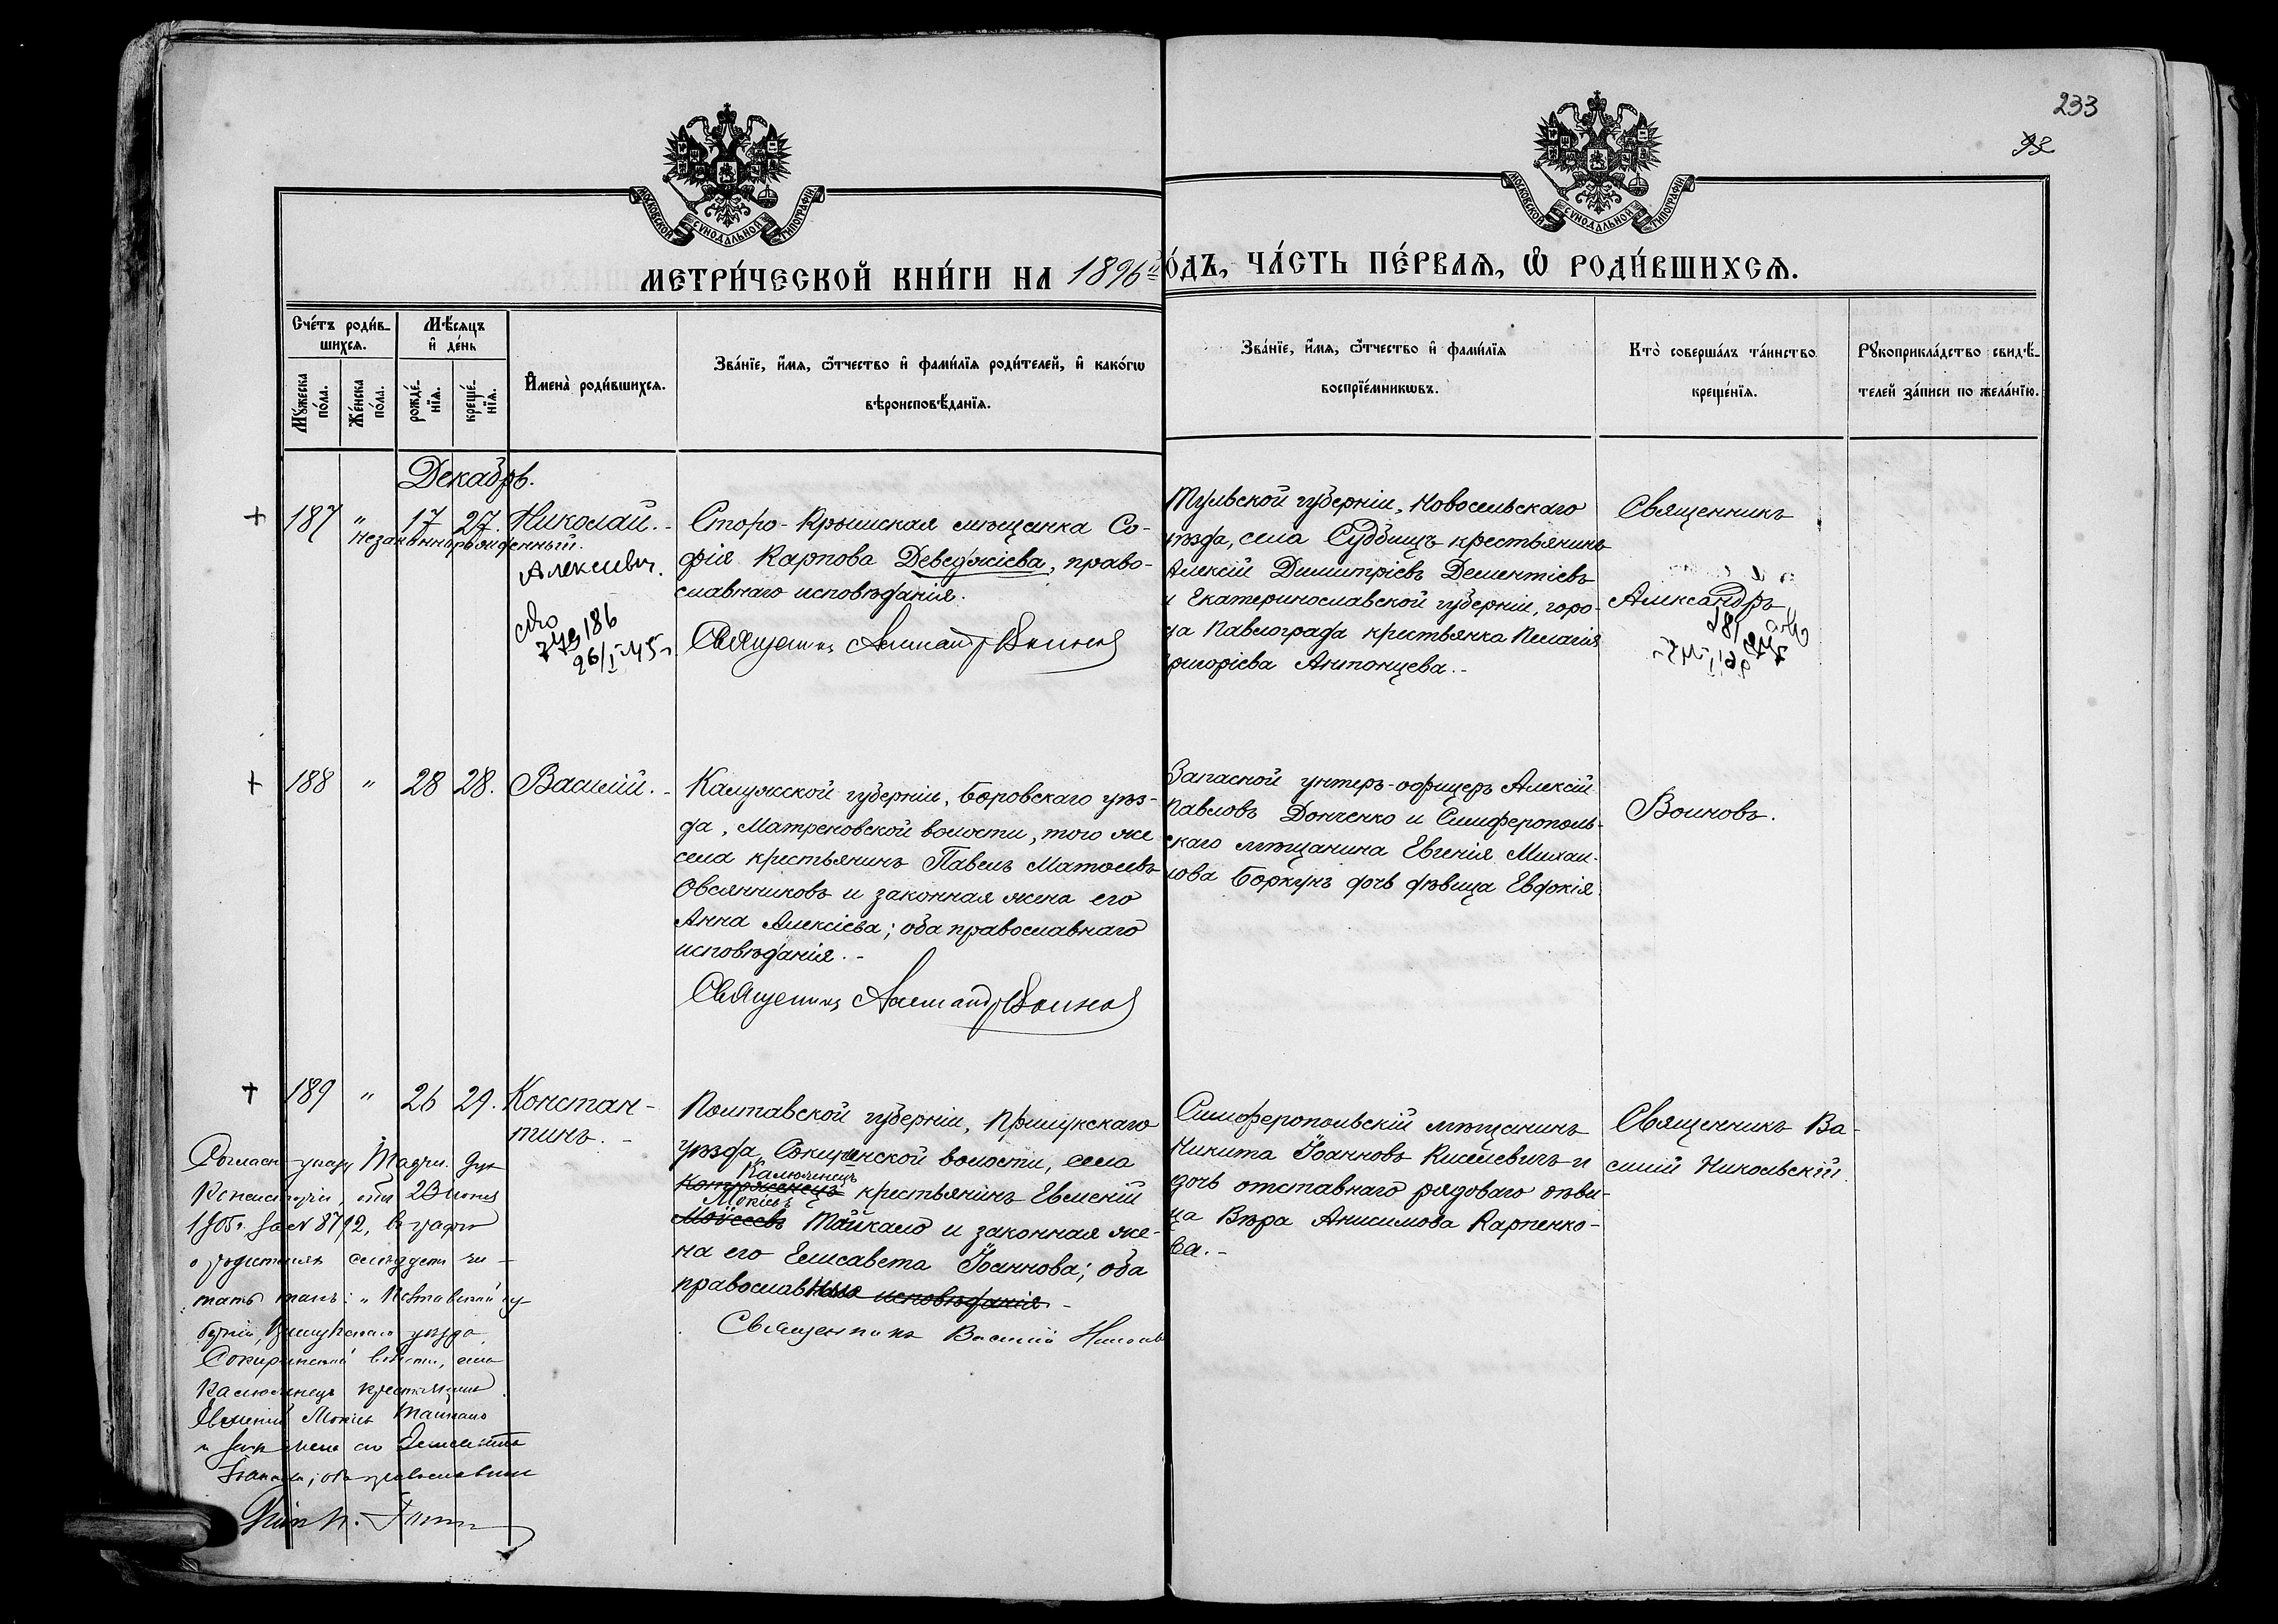 233
93
МОСКОВСКОЙ СѴНОДАЛЬНОЙ ТИПОГРАФІИ
МОСКОВСКОЙ СѴНОДАЛЬНОЙ ТИПОГРАФІИ
МЕТРИ́ЧЕСКОЙ КНИ́ГИ НА 1896й
О́ДЪ, ЧА́СТЬ ПЕ́РВАѦ, Ѡ҆ РОДИ́ВШИХСѦ.
Сче́тъ роди́в-
шихсѧ.
Мꙋ́жеска
по́ла.
Же́нска
по́ла.
Мѣ́сѧцъ
и҆ де́нь
рожде́-
нїѧ.
креще́-
нїѧ.
И҆мена̀ роди́вшихсѧ.
Зва́нїе, и҆́мѧ, ѻ҆́тчество и҆ фами́лїѧ роди́телей, и҆ како́гѡ
вѣроисповѣ́данїѧ.
Зва́нїе, и҆́мѧ, ѻ҆́тчество и҆ фами́лїѧ
воспрїе́мникѡвъ.
Кто̀ соверша́лъ та́инство
креще́нїѧ.
Рꙋкоприкла́дство свидѣ́-
телей за́писи по жела́нїю.
Декабрь.
187 " 17 27. Николай.-
незаконнорожденный.
Алексѣевич.
779186
26/I-45г
Старо-Крымская мѣщанка Со-
фія Карпова Деведжіева, право-
славнаго исповѣданія.
Священникъ Александръ Воиновъ
Тульской губерніи, Новосельскаго
уѣзда, села Судбищъ крестьянинъ
Алексій Димитріевъ Дементіевъ
и Екатеринославской губерніи, горо-
да Павлограда крестьянка Пелагія
Григоріева Антонцева.-
Священникъ
Александръ
188 " 28 28. Василій.-
Калужской губерніи, Боровскаго уѣз-
да, Матреновской волости, того же
села крестьянинъ Павелъ Матвѣевъ
Овсянниковъ и законная жена его
Анна Алексіева; оба православнаго
исповѣданія.-
Священникъ Александръ Воиновъ
Запасной унтеръ-офицеръ Алексій
Павловъ Донченко и Симферополь-
скаго мѣщанина Евгенія Михаи-
лова Боркунъ дочь дѣвица Евдокія.
Воиновъ.
189 " 26 29. Констан-
тинъ.-
Полтавской губерніи, Прилукскаго
уѣзда, Сокиринской волости, села
Калюжинецъ
крестьянинъ Евменій
Мокіевъ
Моѵсеевъ Тайкало и законная же-
на его Елисавета Іоаннова; оба
православные исповѣданія-
Священникъ Василій Никольс
Симферопольскій мѣщанинъ
Никита Іоанновъ Киселевичъ и
дочь отставнаго рядоваго дѣви-
ца Вѣра Анисимова Карпенко-
ва.-
Священникъ Ва-
силій Никольскій.
Согласно указу Таврич. Дух
Консисторіи, отъ 23 іюня
1905г. за № 8792, въ графѣ
о родителях слѣдуетъ чи-
тать такъ: „Полтавской гу-
берніи, Прилукскаго уѣзда
Сокиринской волости, села
Калюжинецъ крестьянинъ
Евменій Мокіевъ Тайкало
и зак жена его Елисавета
Іоаннова; оба православные